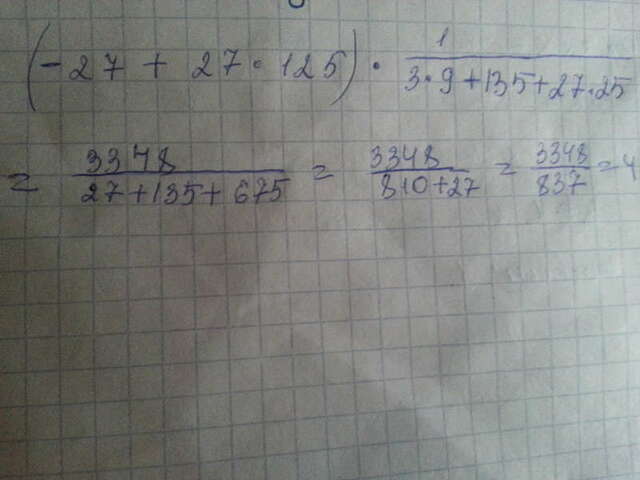 (-27 + 27·125) · 1/(3·9+135+27·25)
= 3348/(27+135+675) = 3348/(810+27) = 3348/837 = 4